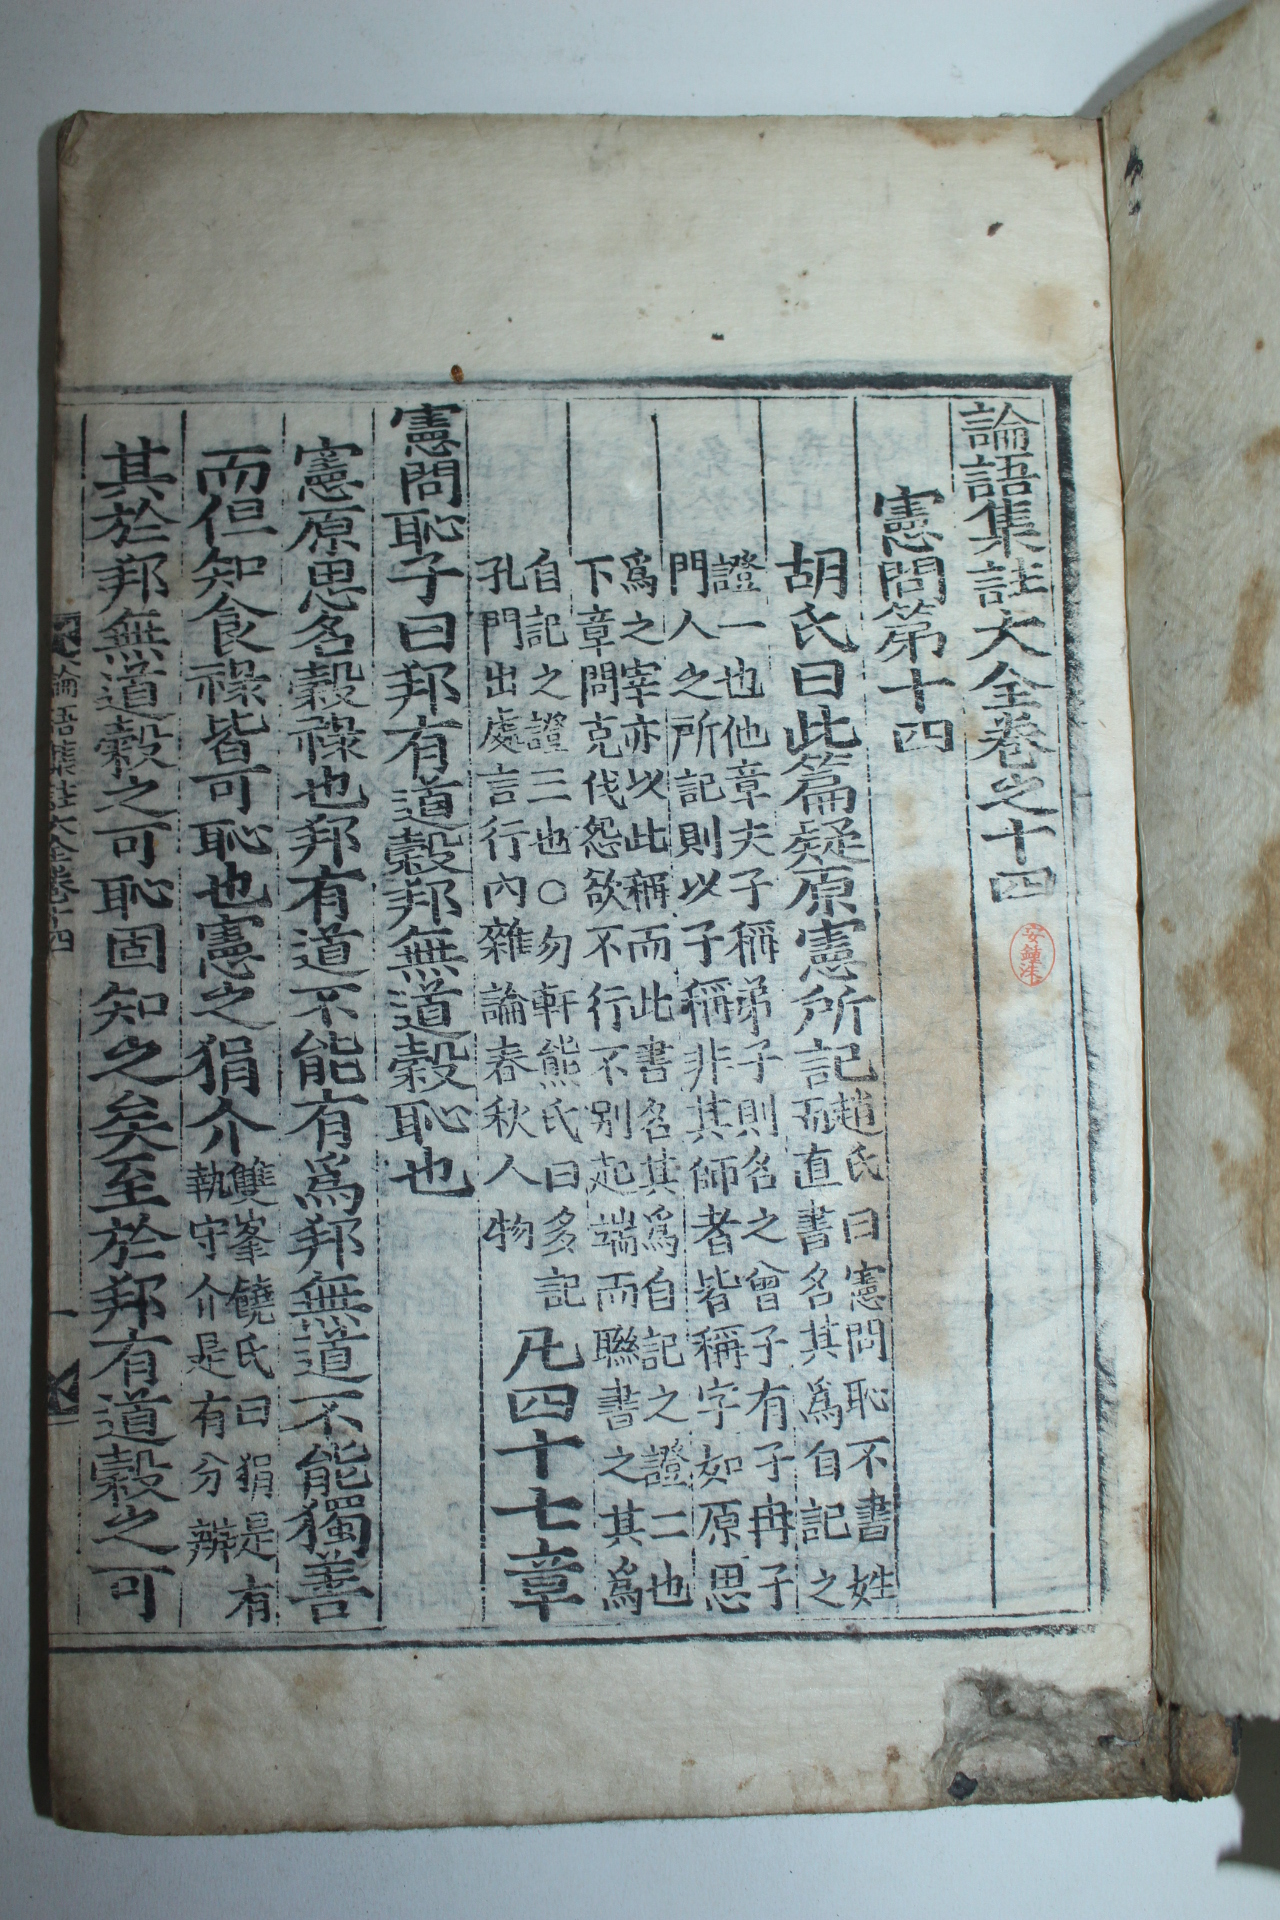 論語集註大全卷之十四
憲問第十四
胡氏曰此篇疑原憲所記趙氏曰憲問恥不書姓
而直書名其爲自記之
證一也他章夫子稱弟子則名之曾子有子冉子
門人之所記則以子稱非其師者皆稱字如原思
爲之宰亦以此稱而此書名其爲自記之證二也
下章問克伐怨欲不行不别起端而聯書之其爲
自記之證三也○勿軒熊氏曰多記
孔門出處言行內雜論春秋人物
凡四十七章
憲問恥子曰邦有道穀邦無道穀恥也
憲原思名穀祿也邦有道不能有爲邦無道不能獨善
而但知食祿皆可恥也憲之狷介雙峯饒氏曰狷是有
執守介是有分辨
其於邦無道穀之可恥固知之矣至於邦有道穀之可
論語集註大全卷十四
一